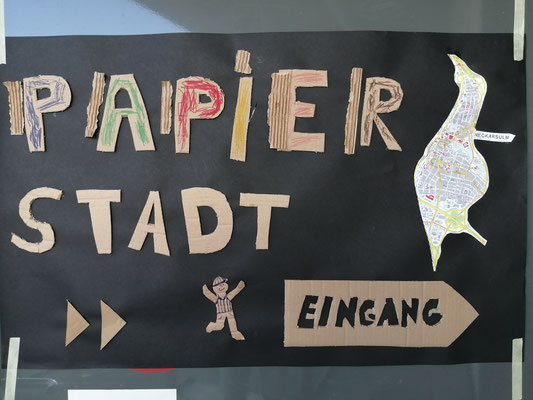 PAPiER
STADT
NECKARSULM
EINGANG